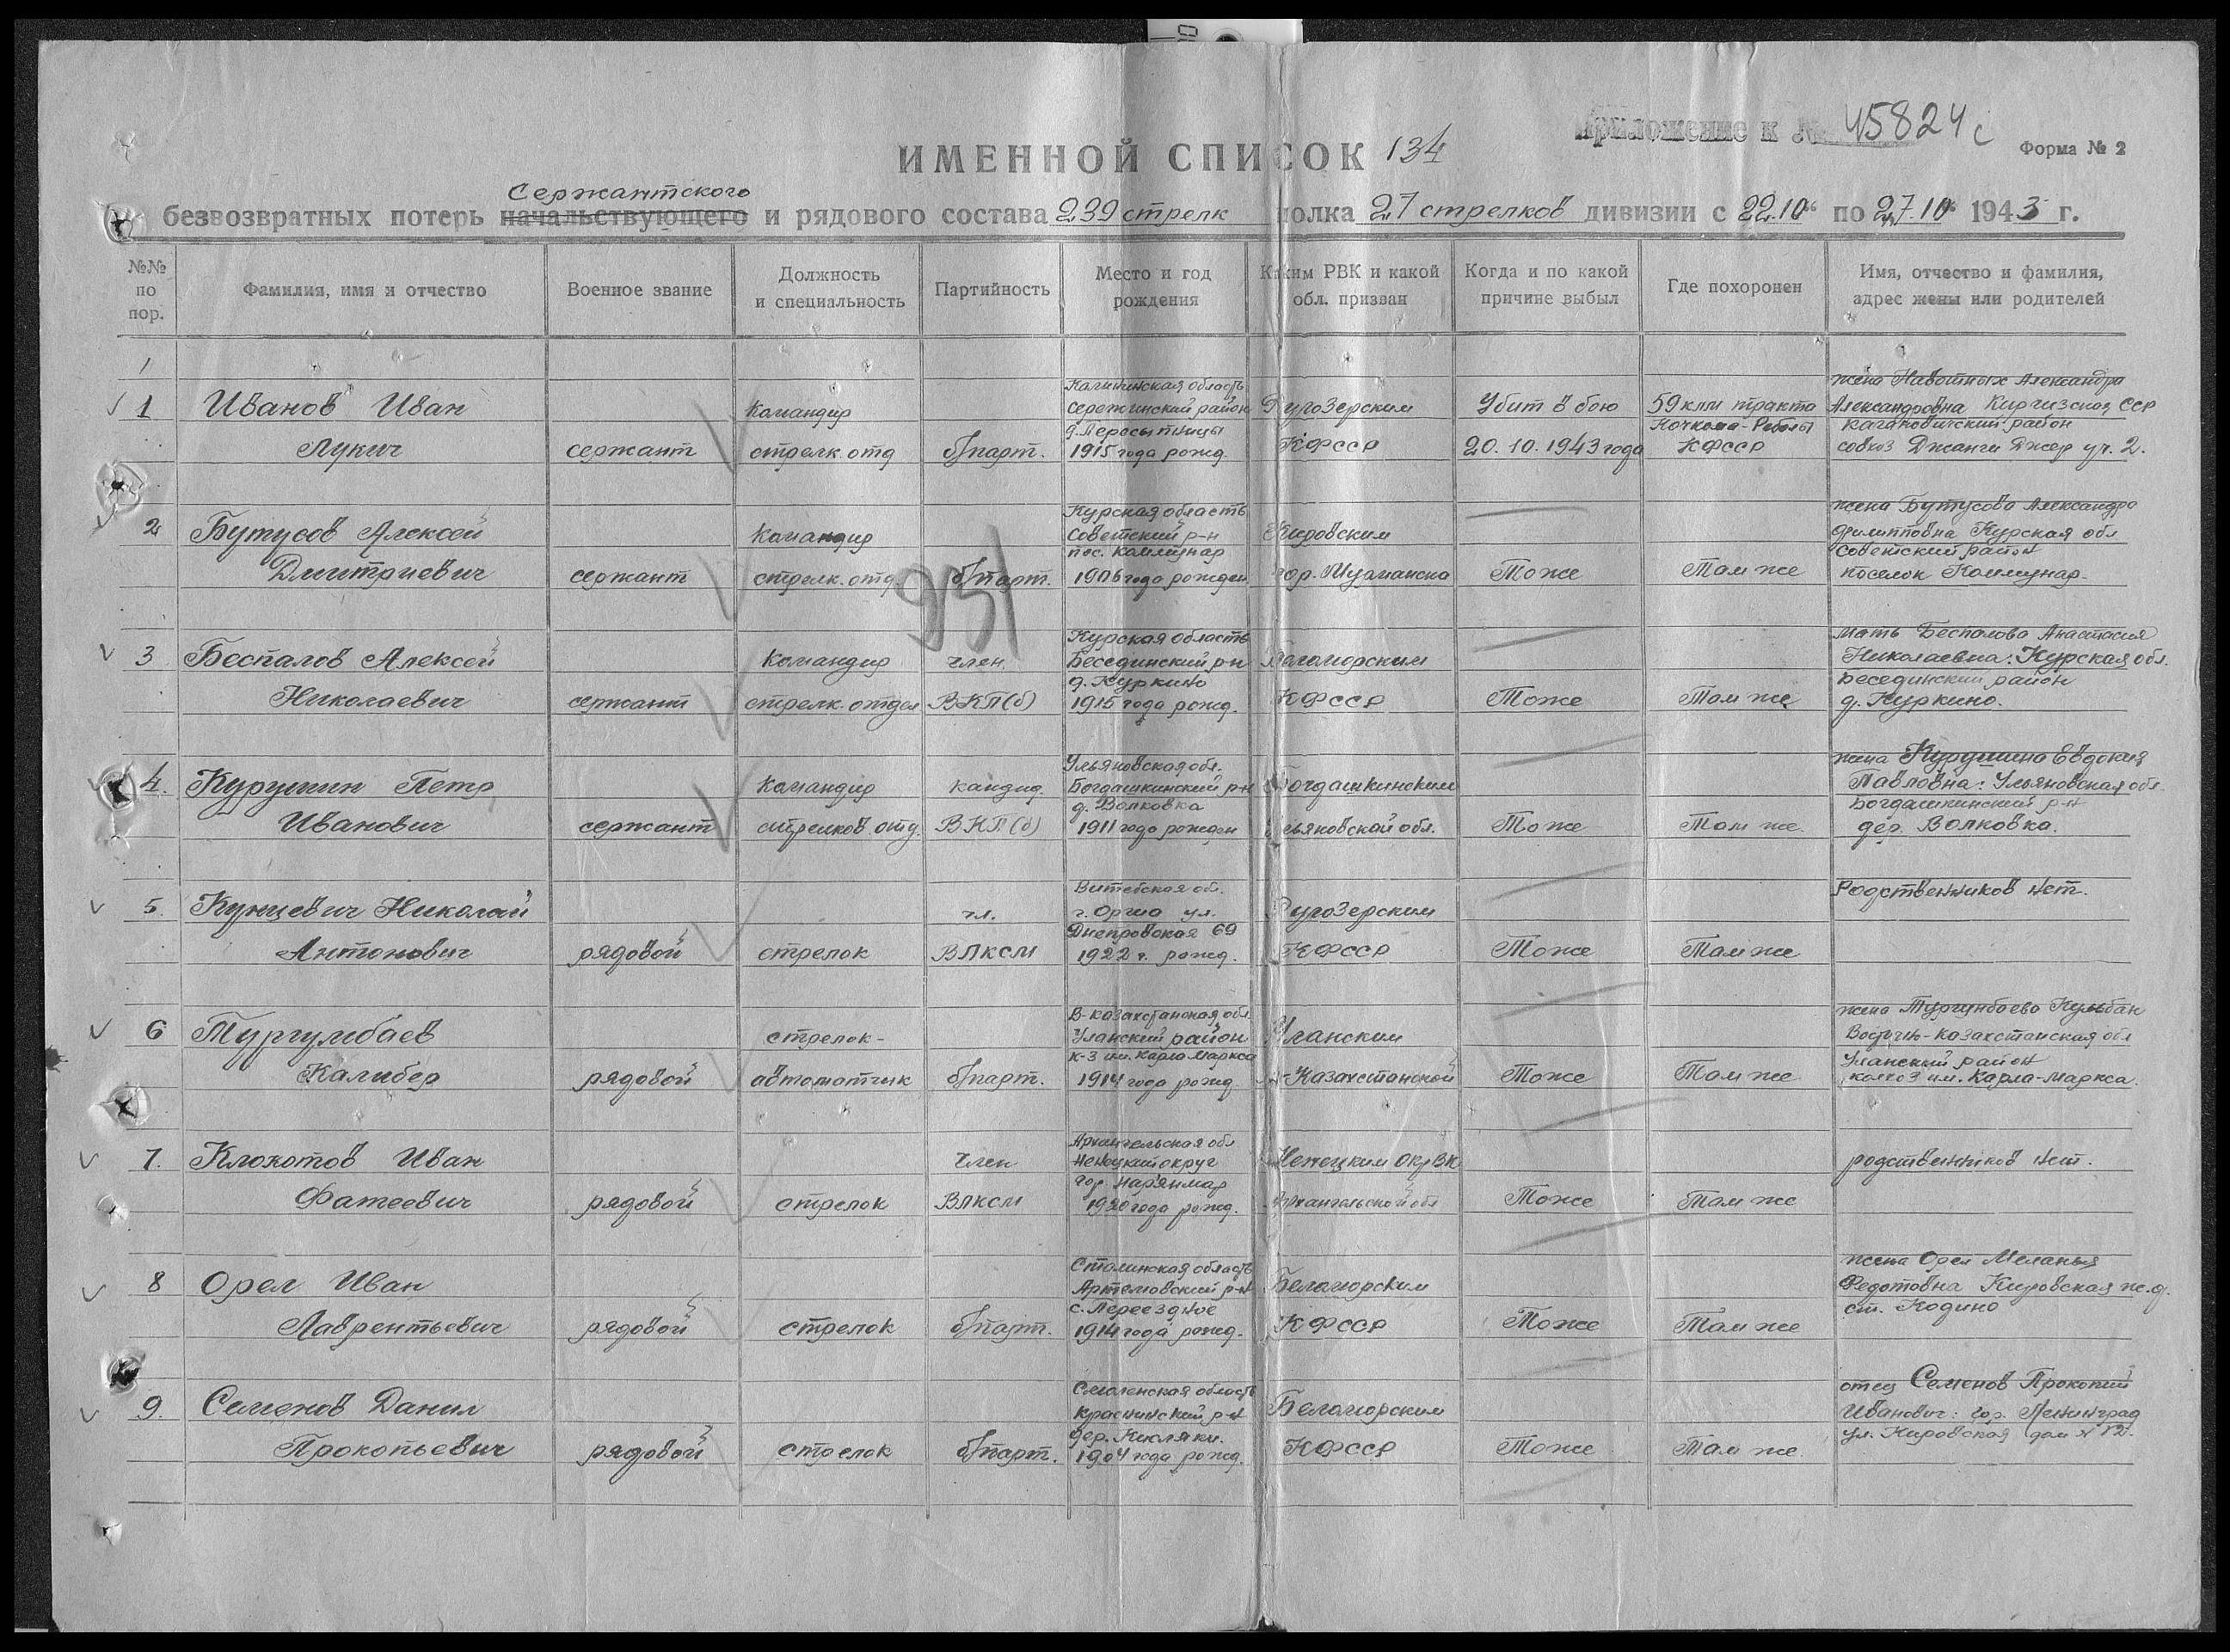 Приложение к № 45824с
ИМЕННОЙ СПИСОК 134
Форма № 2
Сержантского
безвозвратных потерь начальствующего и рядового состава 239 стрелк полка 27 стрелков дивизии с 22.10" по 27.10" 1943 г.
№№ по пор.
Фамилия, имя и отчество
Военное звание
Должность и специальность
Партийность
Место и год рождения
Каким РВК и какой обл. призван
Когда и по какой причине выбыл
Где похоронен
Имя, отчество и фамилия, адрес жены или родителей
951
1
Иванов Иван
Лукич
сержант
Командир
стрелк. отд
б/парт.
Калининская область
район
1915 года рожд.
Ругозерским
КФССР
Убит в бою
20.10.1943 года
59 клм тракта
Кочкома-Реболы
КФССР
жена Александра
Александровна Киргизская ССР
Кагановичский район
совхоз Джанги Джер уч. 2.
2
Бутусов Алексей
Дмитриевич
сержант
Командир
стрелк. отд.
б/парт.
Курская область
Советский р-н
пос. Коммунар
1906 года рожден
Кировским
гор. Мурманска
Тоже
Там же
жена Бутусова Александра
Филипповна Курская обл
Советский район
поселок Коммунар.
3
Беспалов Алексей
Николаевич
сержант
Командир
стрелк. отдел
член
ВКП(б)
Курская область
Бесединский р-н
д. Куркино
1915 года рожд.
КФССР
Тоже
Там же
мать Беспалова Анастасия
Николаевна: Курская обл.
Бесединский район
д. Куркино.
4.
Курушин Петр
Иванович
сержант
Командир
стрелков. отд.
кандид.
ВКП(б)
Ульяновская обл.
Богдашкинский р-н
д. Волковка
1911 года рожден
Богдашкинским
Ульяновской обл.
Тоже
Там же.
жена Курушина Евдокия
Павловна: Ульяновская обл.
Богдашкинский р-н
дер. Волковка.
5.
Кунцевич Николай
Антонович
рядовой
стрелок
чл.
ВЛКСМ
Витебская обл.
г. Орша ул.
Днепровская 69
1922 г. рожд.
Ругозерским
КФССР
Тоже
Там же
Родственников нет.
6
Тургумбаев
Калибер
рядовой
стрелок-
автоматчик
б/парт.
В-Казахстанская обл.
Уланский район
к-з им. Карла Маркса
1914 года рожд
Уланским
В-Казахстанской
Тоже
Там же
жена Тургунбаева Кульбан
Восточн-Казахстанская обл
Уланский район
колхоз им. Карла-Маркса.
7.
Клокотов Иван
Фатеевич
рядовой
стрелок
Член
ВЛКСМ
Архангельская обл
Ненецкий округ
гор. Нарянмар
1920 года рожд.
Ненецким ОкрВК
Архангельской обл
Тоже
Там же
родственников нет.
8
Орел Иван
Лаврентьевич
рядовой
стрелок
б/парт.
Сталинская область
Артемовский р-н
с. Переездное
1914 года рожд.
Беломорским
КФССР
Тоже
Там же
жена Орел Меланья
Федотовна Кировская ж.д.
ст. Кодино
9.
Семенов Данил
Прокопьевич
рядовой
стрелок
б/парт.
Смоленская область
Краснинский р-н
дер. Кисляки.
1904 года рожд.
Беломорским
КФССР
Тоже
Там же.
отец Семенов Прокопий
Иванович: гор. Ленинград
ул. Кировская дом № 12.